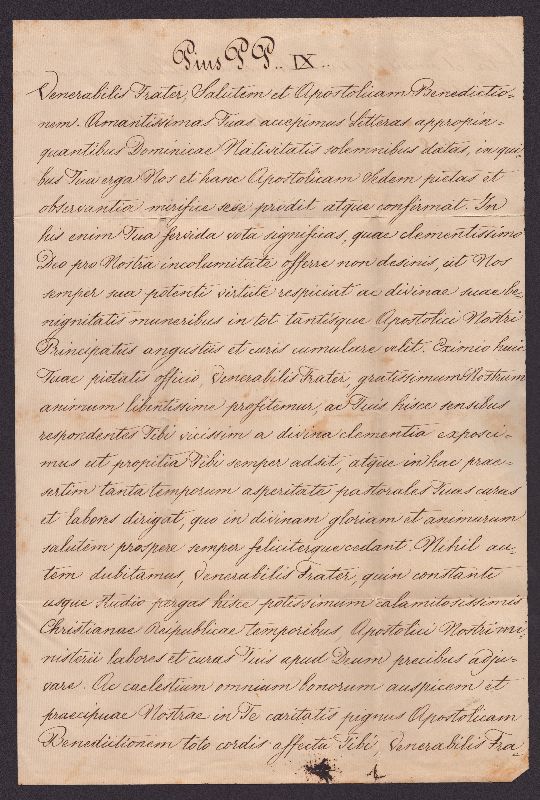 Pius P P.. IX..
Venerabilis Frater, Salutem et Apostolicam Benedictio-
nem. Amantissimas Tuas accepimus Litteras appropin-
quantibus Dominicae Nativitatis solemnibus datas, in qui-
bus Tua erga Nos et hanc Apostolicam Sedem pietas et
observantia mirifice sese prodit atque confirmat. In
his enim Tua fervida vota significas, quae clementissimo
Deo pro Nostra incolumitate offerre non desinis, ut Nos
semper sua potenti virtute respiciat ac divinae suae be-
nignitatis muneribus in tot tantisque Apostolici Nostri
Principatus angustiis et curis cumulare velit. Eximio huic
Tuae pietatis officio, Venerabilis Frater, gratissimum Nostrum
animum libentissime profitemur, ac Tuis hisce sensibus
respondentes Tibi vicissim a divina clementia exposci-
mus ut propitia Tibi semper adsit, atque in hac prae-
sertim tanta temporum asperitate pastorales Tuas curas
et labores dirigat, quo in divinam gloriam et animarum
salutem prospere semper feliciterque cedant. Nihil au-
tem dubitamus, Venerabilis Frater, quin constanti
usque studio pergas hisce potissimum calamitosissimis
Christianae Reipublicae temporibus, Apostolici Nostri mi-
nisterii labores et curas Tuis apud Deum precibus adju-
vare. Ac caelestium omnium bonorum auspicem et
praecipuae Nostrae in Te caritatis pignus Apostolicam
Benedictionem toto cordis affectu Tibi, Venerabilis Fra-